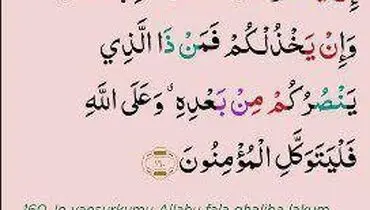 وَإِنْ يَخْذُلْكُمْ فَمَنْ ذَا الَّذِي
يَنْصُرُكُمْ مِنْ بَعْدِهِ ۗ وَعَلَى اللَّهِ
فَلْيَتَوَكَّلِ الْمُؤْمِنُونَ ١٦٠
160. In yansurkumu Allahu fala ghaliba lakum